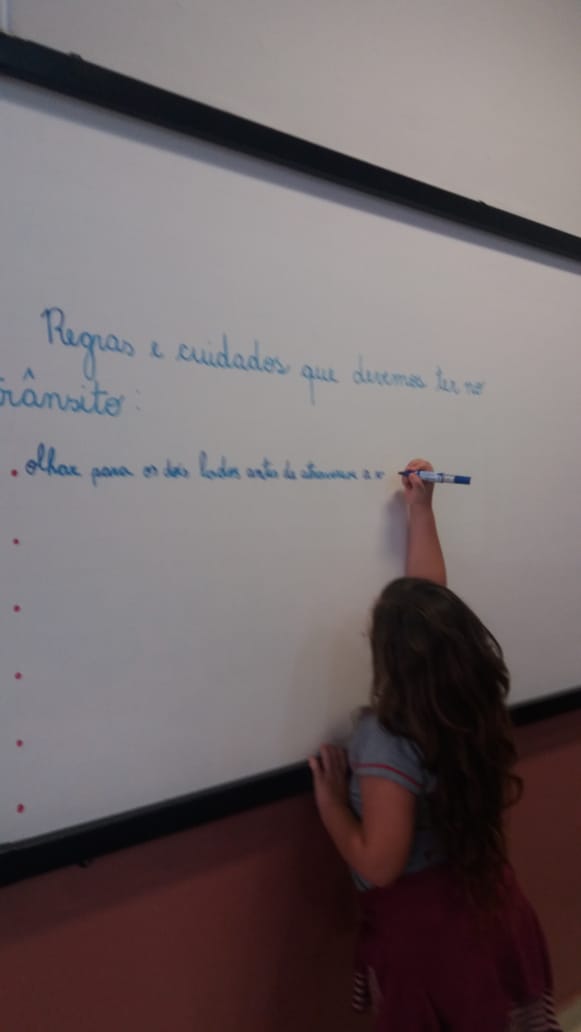 Regras e cuidados que devemos ter no
trânsito:
. olhar para os dois lados antes de atravessar a r